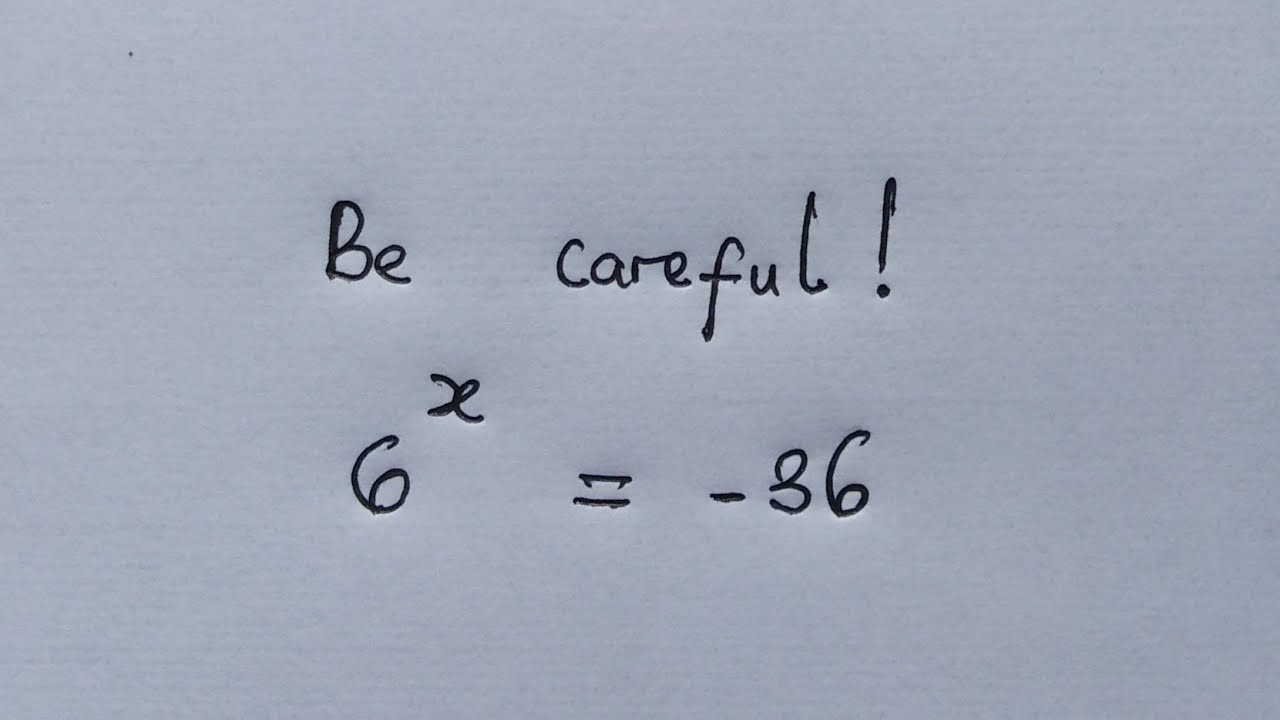 Be careful!
6^x = -36